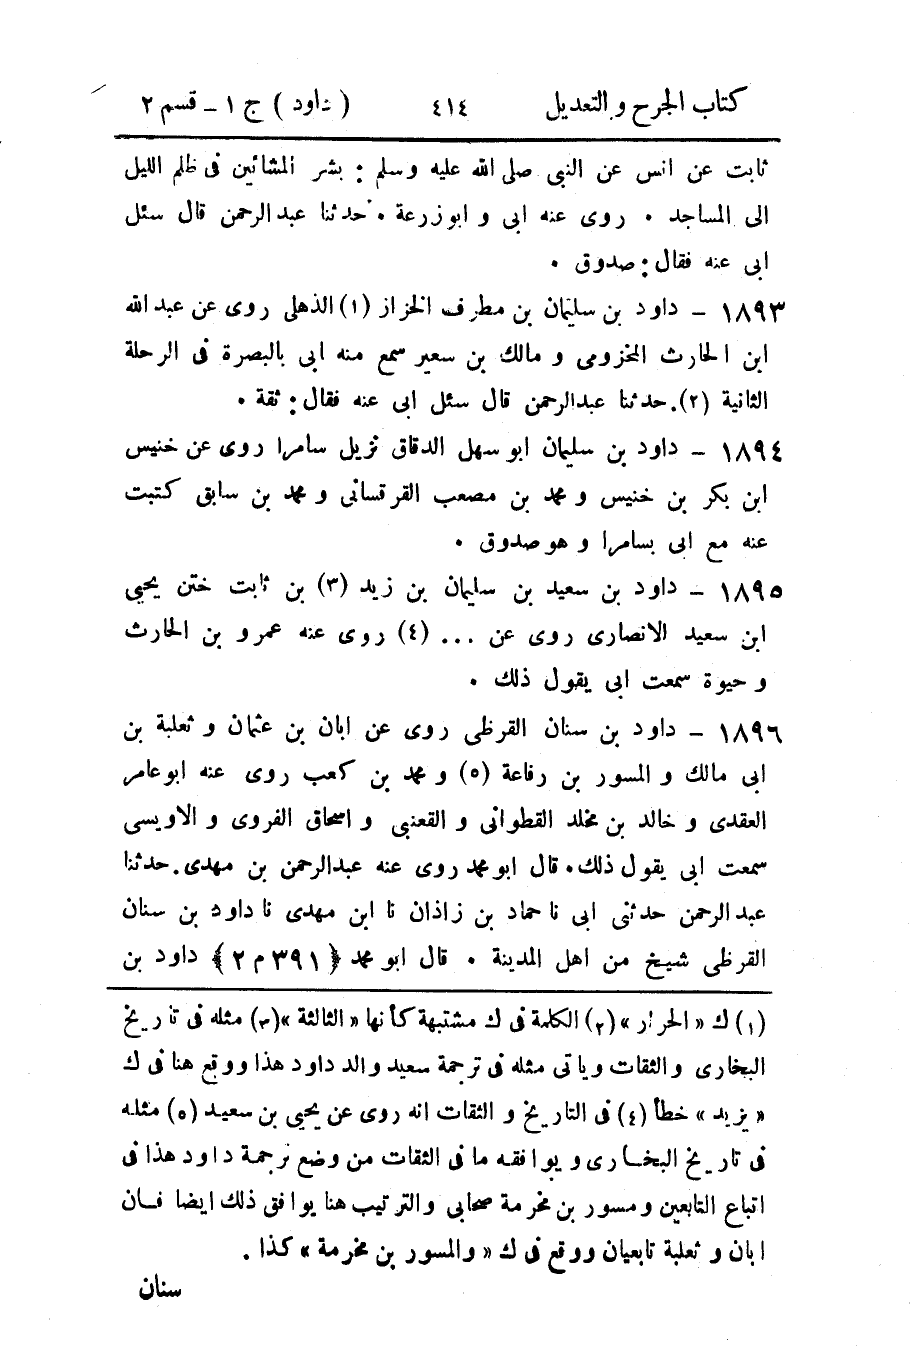 كتاب الجرح و التعديل ٤١٤ ( داود ) ج ١ - قسم ٢
ثابت عن انس عن النبى صلى الله عليه وسلم : بشر المشائين فى ظلم الليل
الى المساجد ٠ روى عنه ابى و ابو زرعة ٠ حدثنا عبد الرحمن قال سئل
ابى عنه فقال : صدوق ٠
١٨٩٣ - داود بن سليمان بن مطرف الخزاز (١) الذهلى روى عن عبد الله
ابن الحارث المخزومى و مالك بن سعير سمع منه ابى بالبصرة فى الرحلة
الثانية (٢). حدثنا عبد الرحمن قال سئل ابى عنه فقال : ثقة ٠
١٨٩٤ - داود بن سليمان ابو سهل الدقاق نزيل سامرا روى عن خنيس
ابن بكر بن خنيس و محمد بن مصعب القرقسانى و محمد بن سابق كتبت
عنه مع ابى بسامرا و هو صدوق ٠
١٨٩٥ - داود بن سعيد بن سليمان بن زيد (٣) بن ثابت ختن يحيى
ابن سعيد الانصارى روى عن ... (٤) روى عنه عمرو بن الحارث
و حيوة سمعت ابى يقول ذلك ٠
١٨٩٦ - داود بن سنان القرظى روى عن ابان بن عثمان و ثعلبة بن
ابى مالك و المسور بن رفاعة (٥) و محمد بن كعب روى عنه ابو عامر
العقدى و خالد بن مخلد القطوانى و القعنبى و اسحاق الفروى و الاويسى
سمعت ابى يقول ذلك ٠ قال ابو محمد روى عنه عبد الرحمن بن مهدى. حدثنا
عبد الرحمن حدثنى ابى نا حماد بن زاذان نا ابن مهدى نا داود بن سنان
القرظى شيخ من اهل المدينة ٠ قال ابو محمد ﴿٣٩١ م ٢﴾ داود بن
(١) ك « الحرار » (٢) الكلمة فى ك مشتبهة كأنها « الثالثة » (٣) مثله فى تاريخ
البخارى والثقات وياتى مثله فى ترجمة سعيد والد داود هذا ووقع هنا فى ك
« يزيد » خطأ (٤) فى التاريخ و الثقات انه روى عن يحيى بن سعيد (٥) مثله
فى تاريخ البخارى و يوافقه ما فى الثقات من وضع ترجمة داود هذا فى
اتباع التابعين و مسور بن مخرمة صحابى والترتيب هنا يوافق ذلك ايضا فان
ابان و ثعلبة تابعيان ووقع فى ك « والمسور بن مخرمة » كذا .
سنان